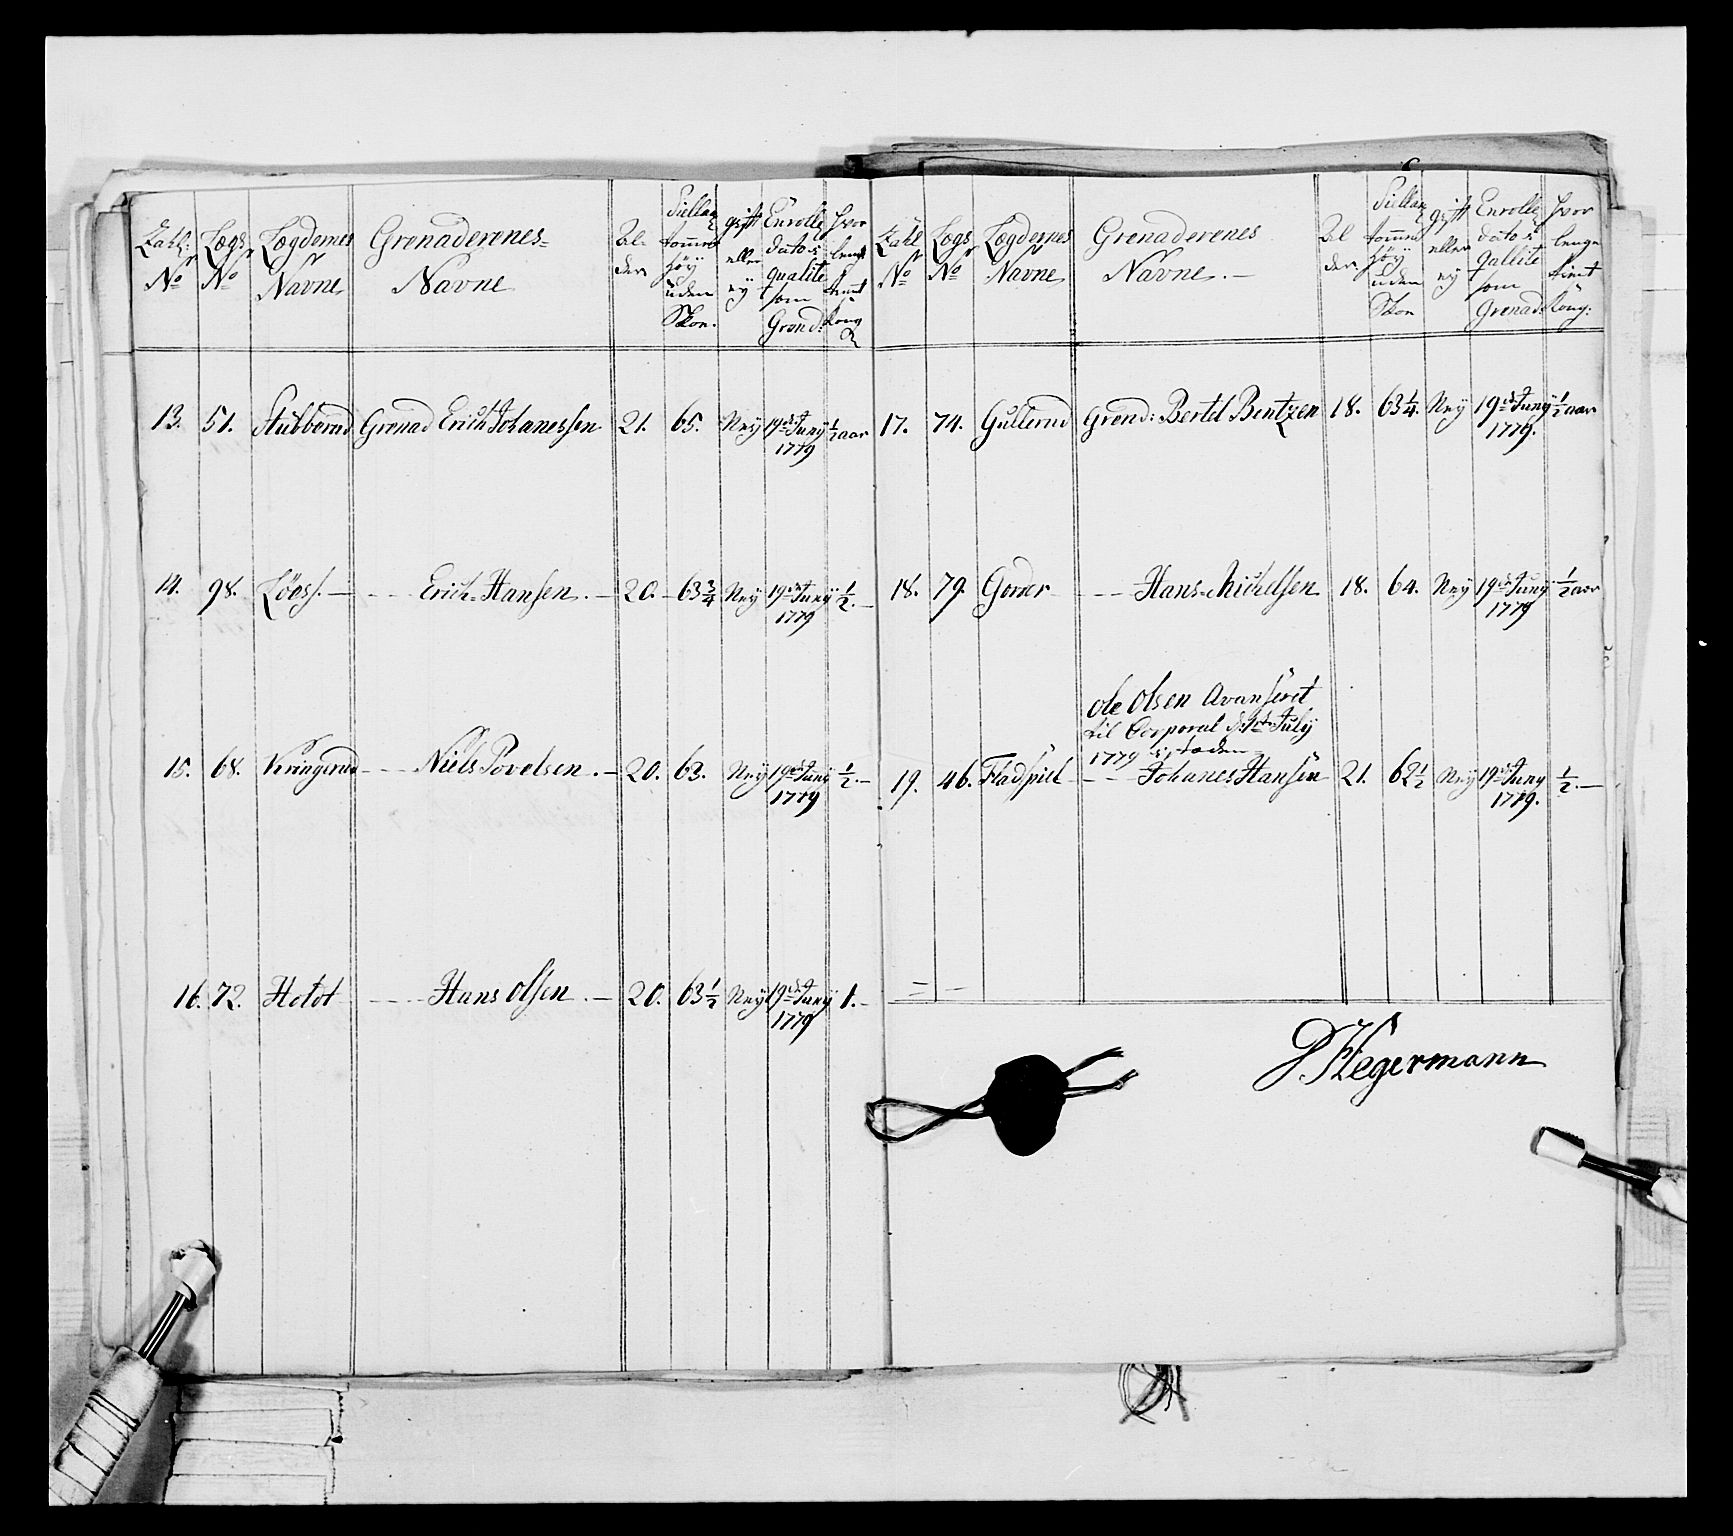 Tahl: Nº | Lægs Nº | Lægdernes Navne | Grenaderenes= Navne | Al= der | Sielland tommer höÿ uden Skoe. | gift eller eÿ | Enrolle= dato i qualite som Grend: | hvor lenge tient kong
13. | 51. | Stubberud | Grenad Erich Johanessen | 21. | 65. | Neÿ | 19de Junÿ 1779 | ½ aar
14. | 98. | Löes | - - - Erich Hansen. | 20. | 63¾ | Neÿ | 19de Junÿ 1779 | ½.
15. | 68. | Kringerud | - - - Niels Povelsen. | 20. | 63. | Neÿ | 19de Junÿ 1779 | ½.
16. | 72. | Holdt | - - - Hans Olsen. | 20. | 63½ | Neÿ | 19de Junÿ 1779 | 1.
Tahl Nº | Lægs Nº | Lægdernes Navne | Grenaderenes Navne. | Al der | Sielland tommer höÿ uden Skoe | gift eller eÿ | Enrolle= dato i qallite som Grenad: | hvor lenge tient kong:
17. | 74. | Gullerud | Grend: Bertel Bentzen | 18. | 63¼. | Neÿ | 19de Junÿ 1779. | ½ aar
18. | 79. | Gorrer | - - Hans Michelsen | 18. | 64. | Neÿ | 19de Junÿ 1779 | ½ aar
Ole Olsen Avanseret
til Corporal d: 1de Julÿ
1779 i staden
19. | 46. | Fladsiel | - - Johanes Hansen | 21. | 62½ | Neÿ | 19de Junÿ 1779. | ½.
P. Hegermann